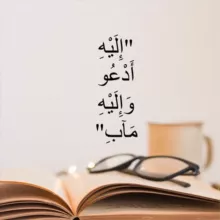 "إِلَيْهِ
أَدْعُو
وَإِلَيْهِ
مَآبِ"